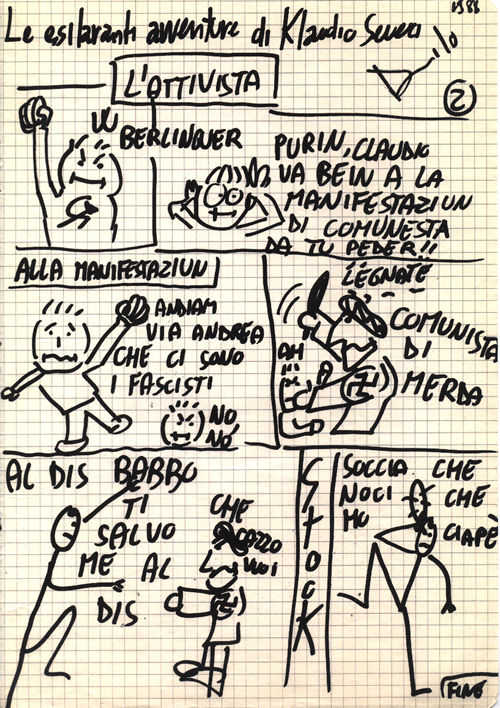 Le esilaranti avventure di Klaudio
1988
L'OTTIVISTA
2
W
BERLINGUER
PURIN, CLAUDIO
VA BEIN A LA
MANIFESTAZIUN
DI COMUNESTA
DA TU PEDER!!
ALLA MANIFESTAZIUN
ANDIAM
VIA ANDREA
CHE CI SONO
I FASCISTI
NO,
NO,
LEGNATE
COMUNISTA
DI
MERDA
AH
A
AL DIS BABBO
TI
SALVO
ME AL
DIS
CHE
CAZZO
VUOI
STOCK
SOCCIA CHE
NOCI CHE
MO CIAPÈ
FINE